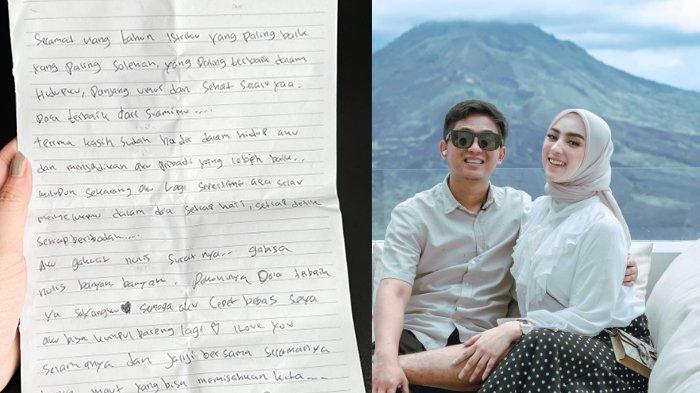 Selamat ulang tahun Istriku yang paling baik
yang paling Solehah, yang paling terbaik dalam
Hidupku, Panjang umur dan Sehat Selalu yaa.
Doa terbaik dari Suamimu.....
terima kasih sudah hadir dalam hidup aku
dan menjadikan aku Pribadi yang lebih baik..
walupun sekarang aku lagi aku selalu
menyelipmu dalam doa setiap hari, setiap detik
setiap beribadah....
Aku gakuat nulis Suratnya.. gabisa
nulis banyak banyak. Pokoknya Doa terbaik
ya sayangku semoga aku Cepet bebas Supaya
aku bisa kumpul bareng lagi I Love You
Selamanya dan janji bersama Selamanya
maut yang bisa memisahkan kita....